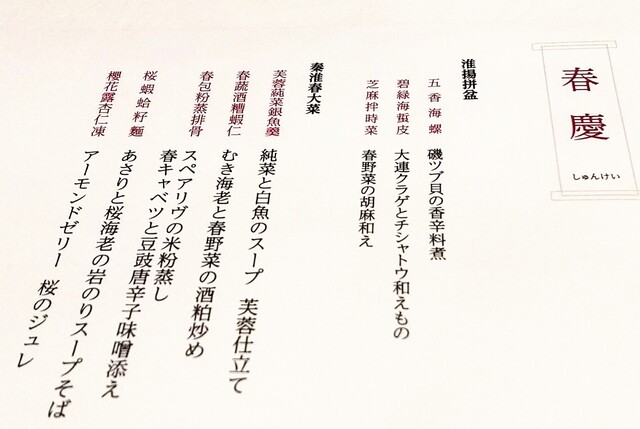 春慶
しゅんけい
淮揚拼盆
五香海螺 磯ツブ貝の香辛料煮
碧緑海蜇皮 大連クラゲとチシャトウ和えもの
芝麻拌時菜 春野菜の胡麻和え
秦淮春大菜
芙蓉純菜銀魚羹 純菜と白魚のスープ 芙蓉仕立て
春蔬酒糟蝦仁 むき海老と春野菜の酒粕炒め
春包粉蒸排骨 スペアリヴの米粉蒸し
春キャベツと豆豉唐辛子味噌添え
桜蝦蛤籽麵 あさりと桜海老の岩のりスープそば
櫻花露杏仁凍 アーモンドゼリー 桜のジュレ